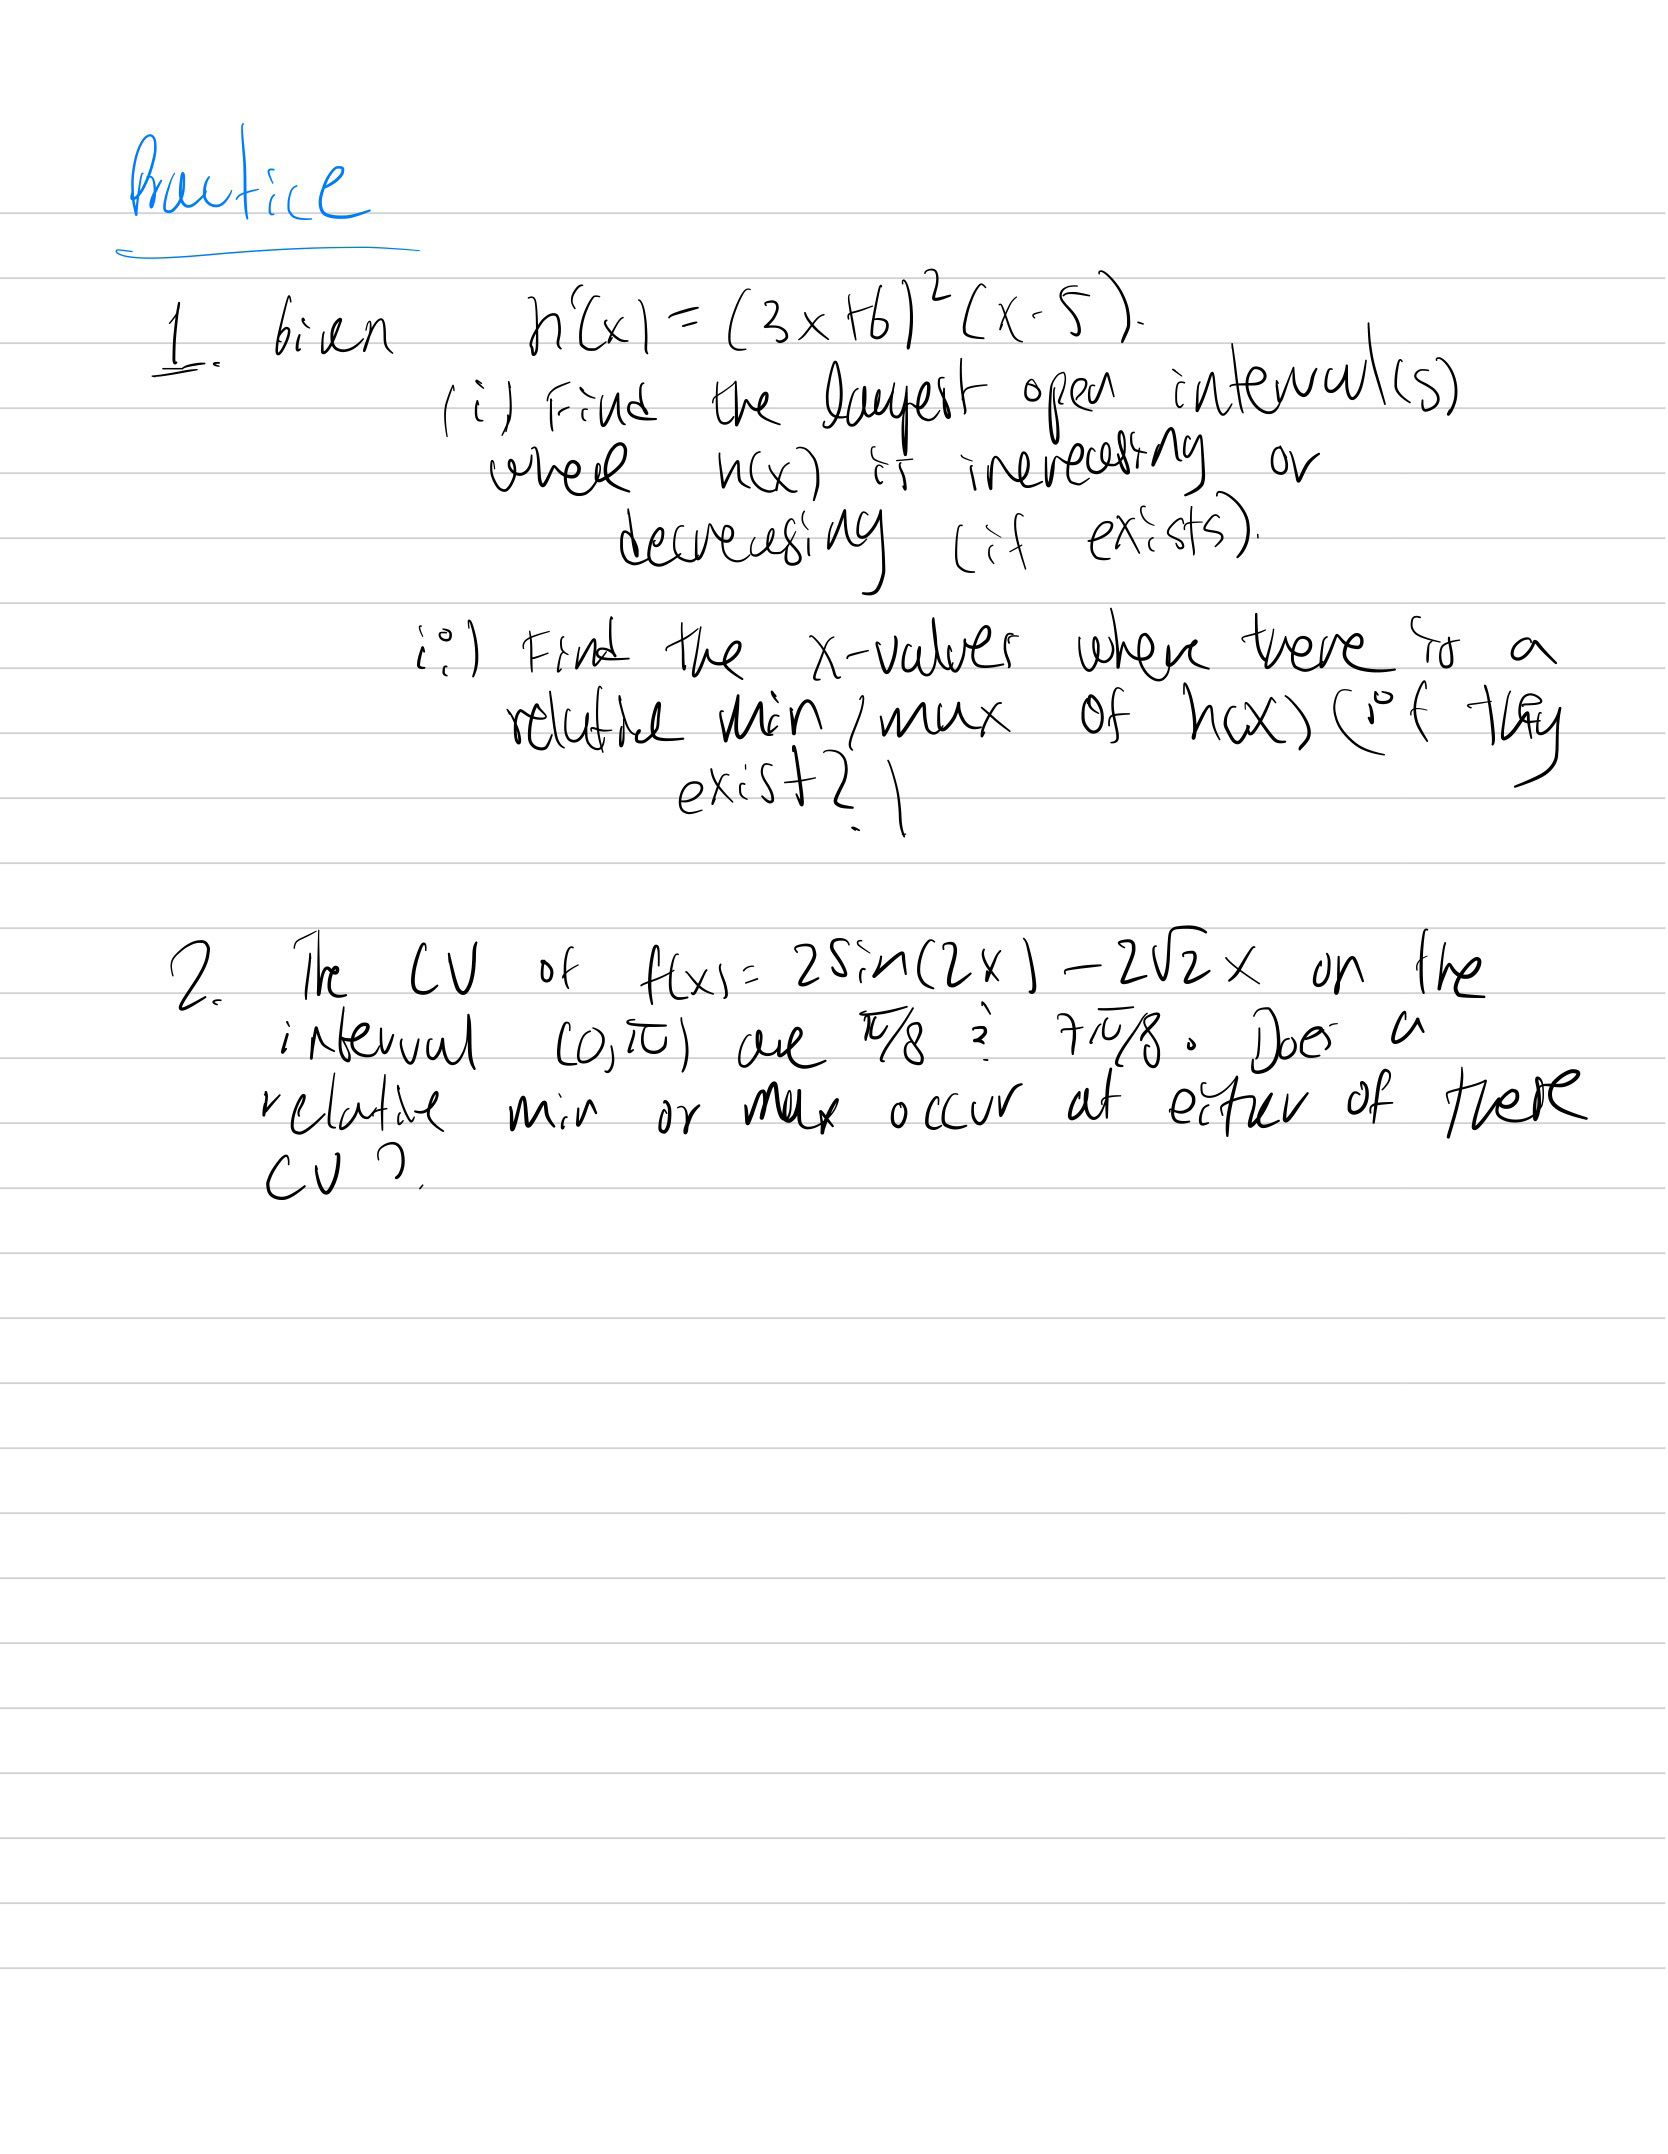 Practice
1. Given h'(x) = (3x+6)²(x-5).
(i) Find the largest open interval(s)
where h(x) is increasing or
decreasing (if exists).
ii) Find the x-values where there is a
relative min/max of h(x) (if they
exist?)
2. The CV of f(x) = 2sin(2x) - 2√2x on the
interval (0,π) are π/8 & 7π/8. Does a
relative min or max occur at either of these
CV?